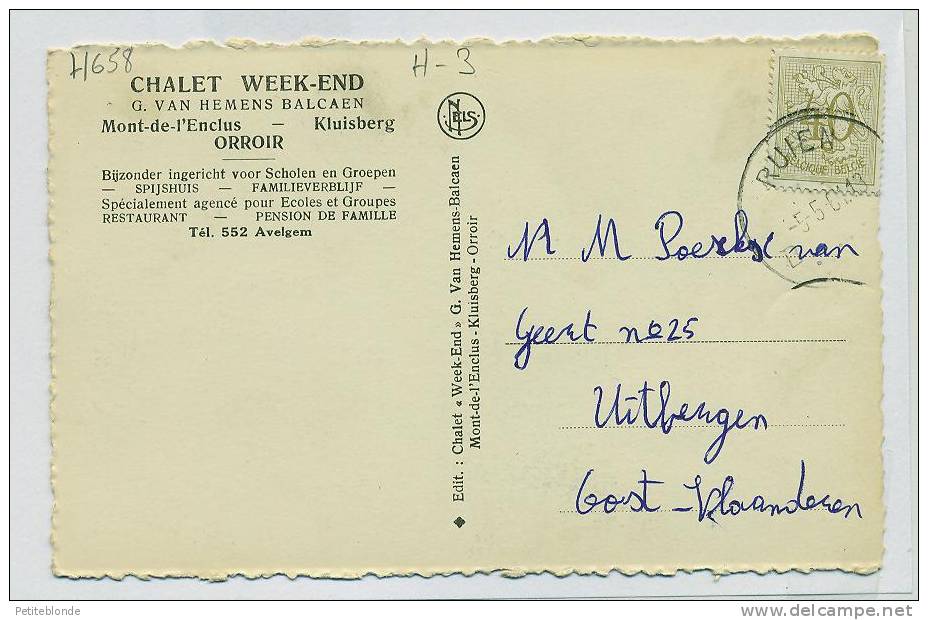 H658
H-3
CHALET WEEK-END
G. VAN HEMENS BALCAEN
Mont-de-l'Enclus — Kluisberg
ORROIR
Bijzonder ingericht voor Scholen en Groepen
— SPIJSHUIS — FAMILIEVERBLIJF —
Spécialement agencé pour Ecoles et Groupes
RESTAURANT — PENSION DE FAMILLE
Tél. 552 Avelgem
NELS
Edit. : Chalet « Week-End » G. Van Hemens-Balcaen
Mont-de-l'Enclus - Kluisberg - Orroir
40
BELGIQUE BELGIË
RUIEN
van
Geert no 25
Uitbergen
Oost-Vlaanderen
Petiteblonde
delcampe.net